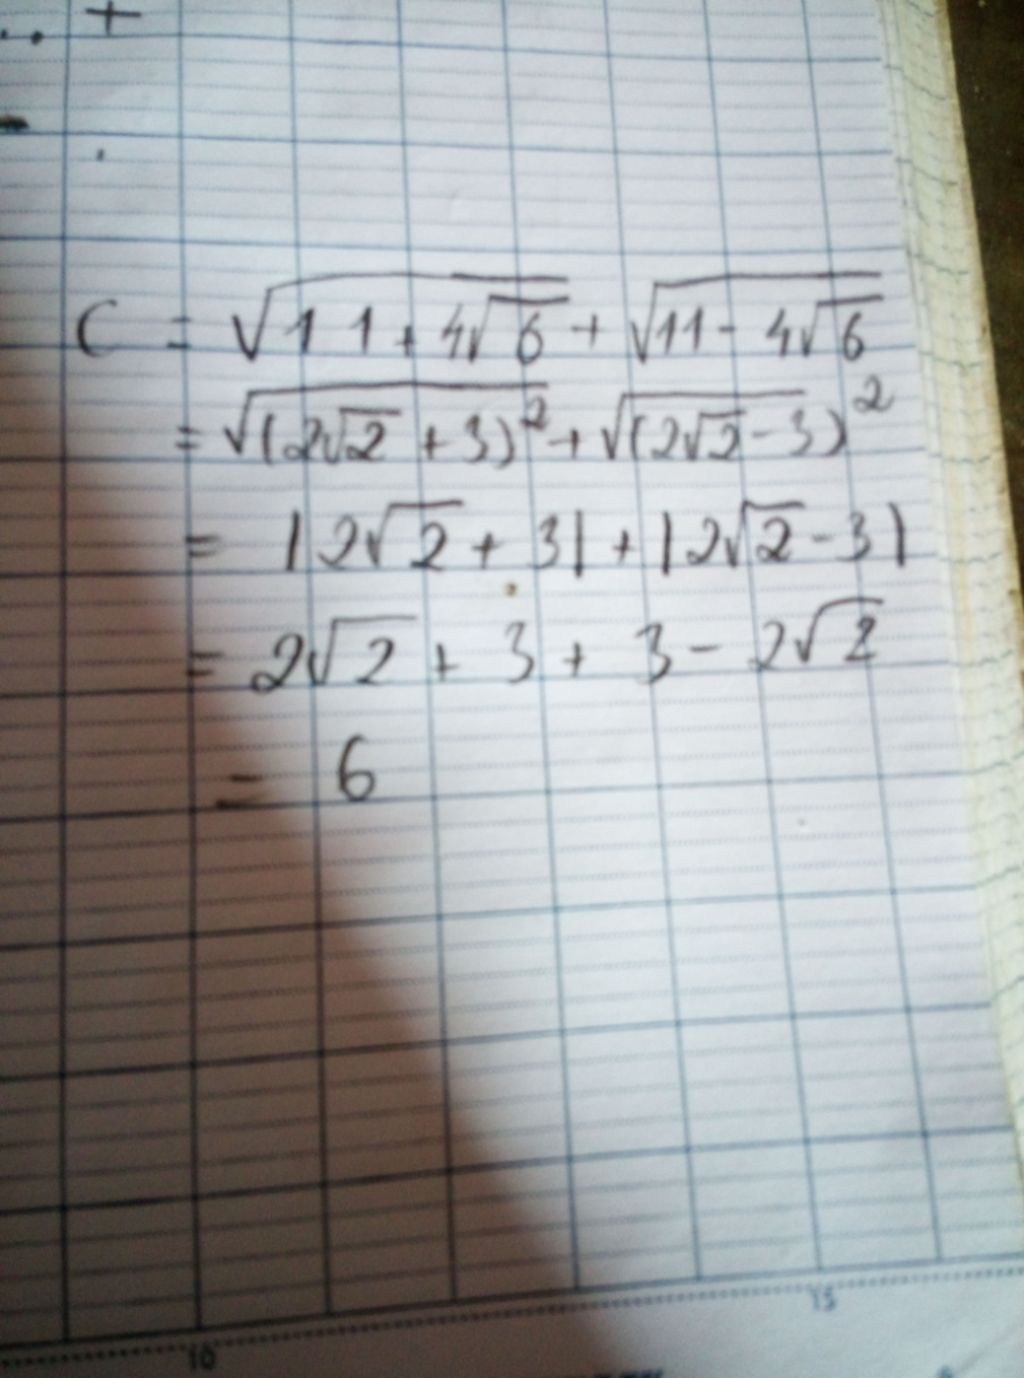 +
C = √(11 + 4√6) + √(11 - 4√6)
= √((2√2 + 3)²) + √((2√2 - 3)²)
= |2√2 + 3| + |2√2 - 3|
= 2√2 + 3 + 3 - 2√2
= 6
15
10